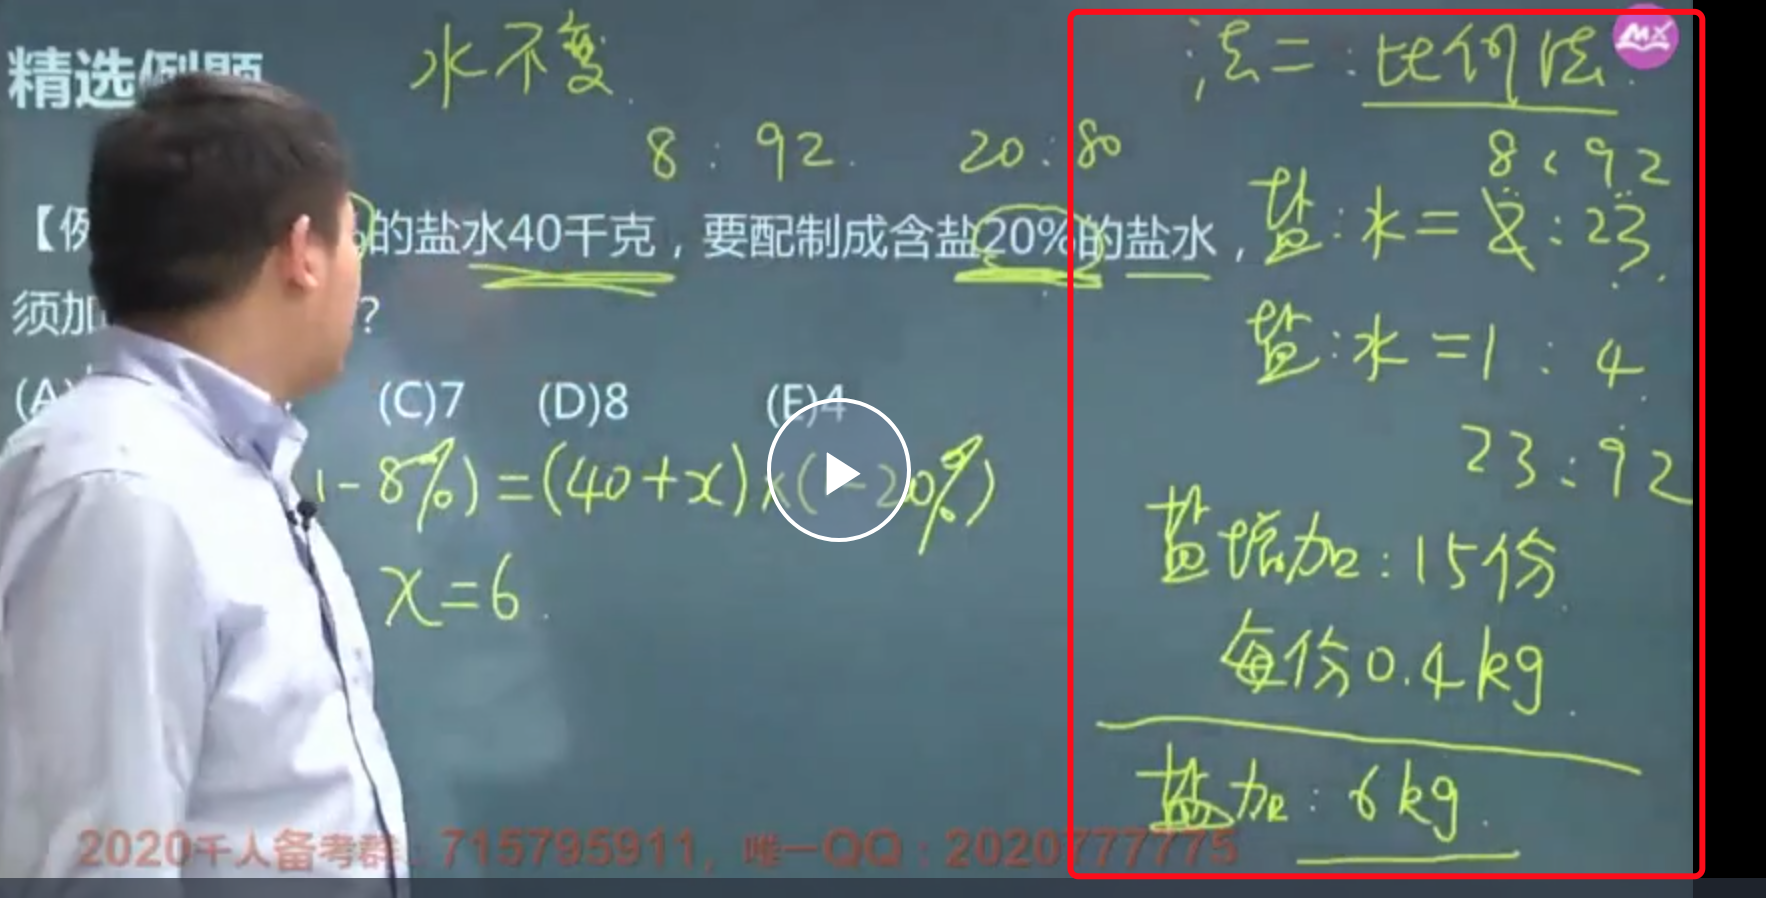 精选例题
水不变
8:92. 20:80
【例 %的盐水40千克，要配制成含盐20%的盐水，
须加 ？
(A) (C)7 (D)8 (E)4
1-8%)=(40+x)×(-20%)
x=6.
法二:比例法.
MX
8:92
盐:水=2:23.
盐:水=1:4.
23:92
盐增加:15份
每份0.4kg.
盐加:6kg.
2020千人备考群:715795911，唯一QQ:2020777775